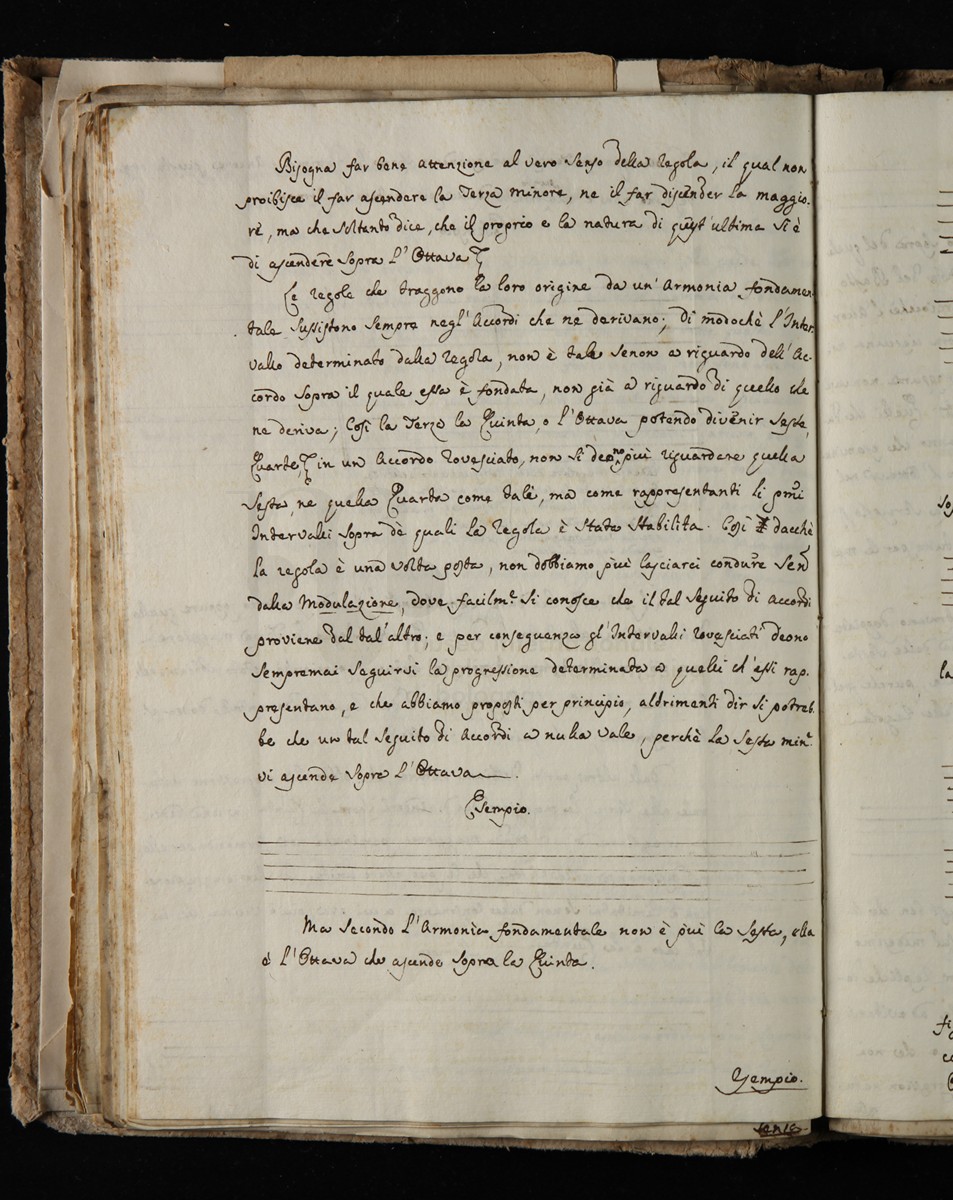 Bisogna far bene attenzione al vero senso della regola, il qual non
proibisce il far ascendere la Terza minore, ne il far discender la maggio-
re, ma che soltanto dice, che il proprio e la natura di quest'ultima si è
di ascendere sopra l'Ottava
Le regole che traggono la loro origine da un'Armonia fondamen-
tale sussistono sempre negl'Accordi che ne derivano; Di modochè l'Inter-
vallo determinato dalla regola, non è tale senon a riguardo dell'Ac-
cordo sopra il quale essa è fondata, non già a riguardo di quello che
ne deriva; Così la Terza la Quinta, o l'Ottava potendo divenir Sesta,
Quarta in un Accordo rovesciato, non si deono più riguardare quella
Sesta, ne quella Quarta come tale, ma come rappresentanti li pmi
Intervalli sopra de quali la regola è stata stabilita. Così dacchè
la regola è una volta posta, non dobbiamo più lasciarci condurre sen
dalla Modulazione, dove facilmte. si conosce che il tal seguito di accordi
proviene dal tal'altro; e per conseguenza gl'Intervalli rovesciati deono
sempremai seguirsi la progressione determinata a quelli ch'essi rap-
presentano, e che abbiamo proposti per principio, altrimenti dir si potreb-
be che un tal seguito di Accordi a nulla vale, perchè la Sesta mine.
vi ascende sopra l'Ottava.
Esempio.
Ma secondo l'Armonia fondamentale non è più la Sesta, ella
è l'Ottava che ascende sopra la Quinta.
Esempio.